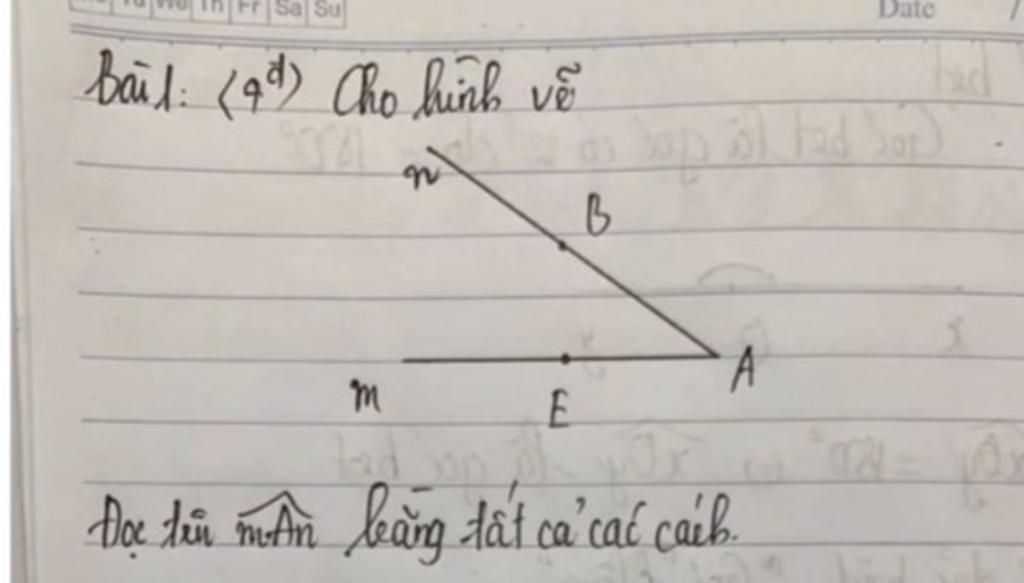 Tu We Th Fr Sa Su
Date /
Bài 1: <4đ> Cho hình vẽ
n
B
A
m
E
Đọc tên mAn bằng tất cả các cách.